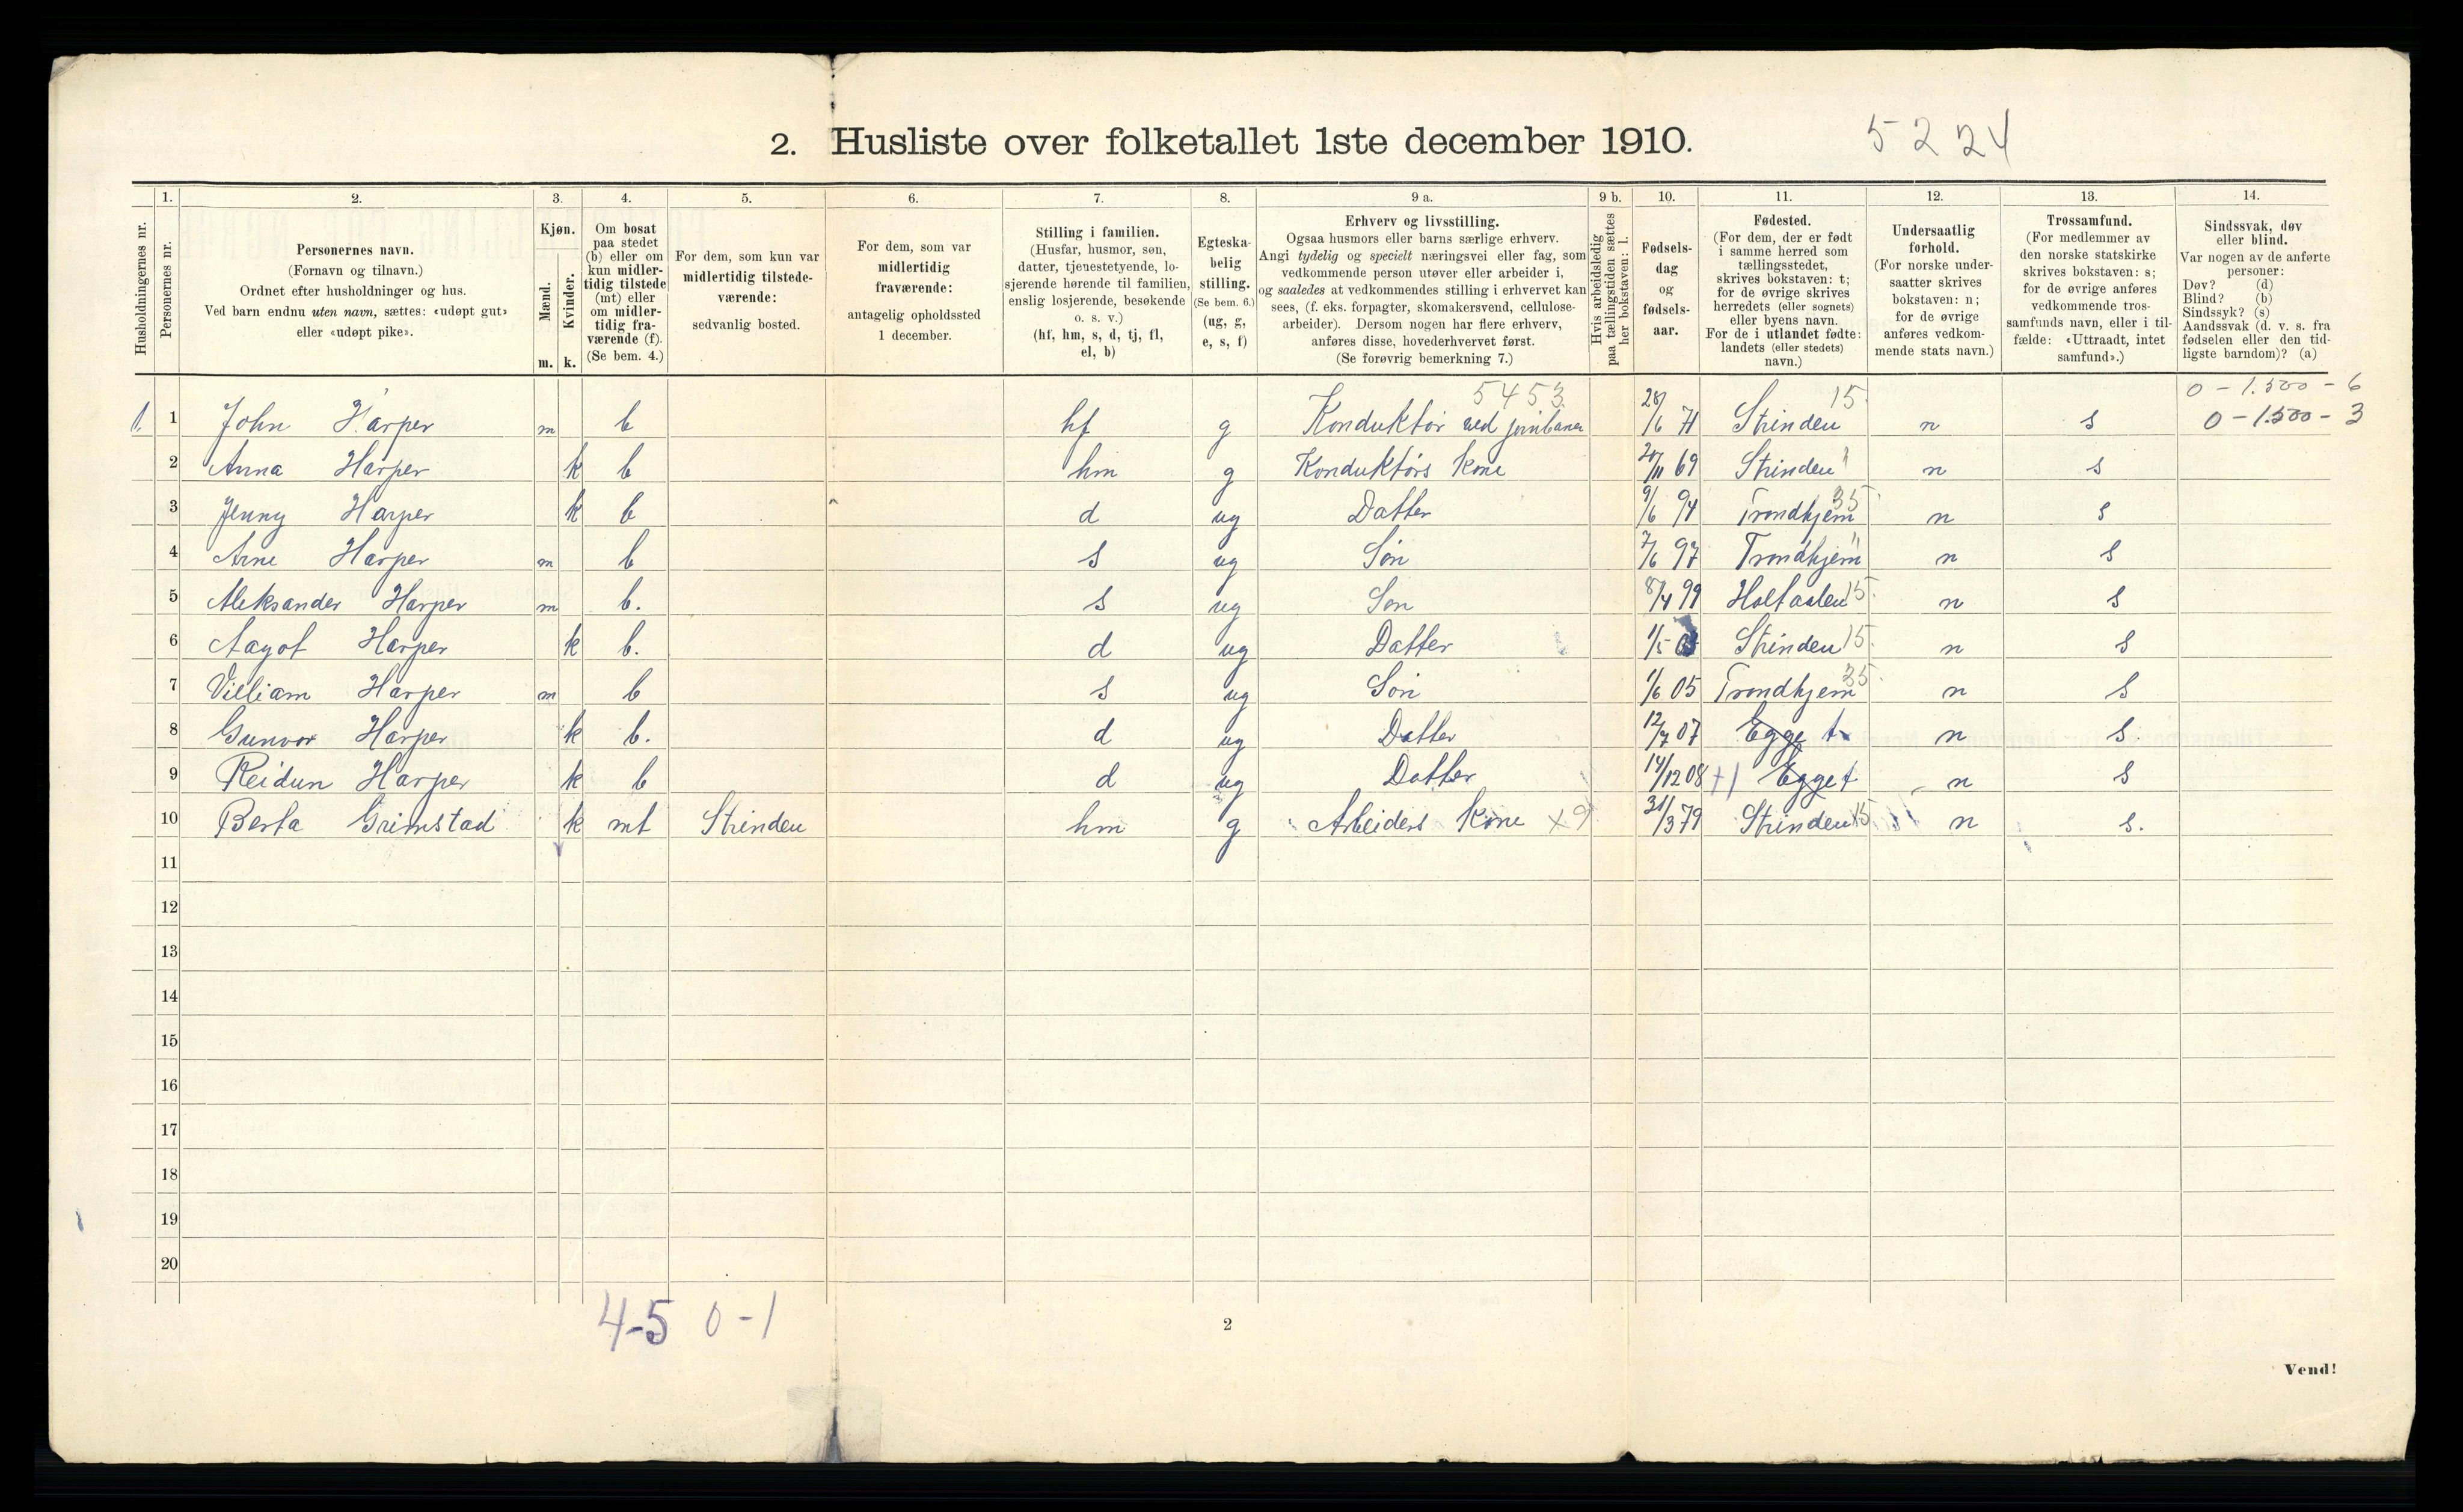 2. Husliste over folketallet 1ste december 1910. 5224
Husholdningernes nr.
1. Personernes nr.
2. Personernes navn.
(Fornavn og tilnavn.)
Ordnet efter husholdninger og hus.
Ved barn endnu uten navn, sættes: «udøpt gut»
eller «udøpt pike».
3. Kjøn.
Mænd. m.
Kvinder. k.
4. Om bosat
paa stedet
(b) eller om
kun midler-
tidig tilstede
(mt) eller
om midler-
tidig fra-
værende (f).
(Se bem. 4.)
5. For dem, som kun var
midlertidig tilstede-
værende:
sedvanlig bosted.
6. For dem, som var
midlertidig
fraværende:
antagelig opholdssted
1 december.
7. Stilling i familien.
(Husfar, husmor, søn,
datter, tjenestetyende, lo-
sjerende hørende til familien,
enslig losjerende, besøkende
o. s. v.)
(hf, hm, s, d, tj, fl,
el, b)
8. Egteska-
belig
stilling.
(Se bem. 6.)
(ug, g,
e, s, f)
9 a. Erhverv og livsstilling.
Ogsaa husmors eller barns særlige erhverv.
Angi tydelig og specielt næringsvei eller fag, som
vedkommende person utøver eller arbeider i,
og saaledes at vedkommendes stilling i erhvervet kan
sees, (f. eks. forpagter, skomakersvend, cellulose-
arbeider). Dersom nogen har flere erhverv,
anføres disse, hovederhvervet først.
(Se forøvrig bemerkning 7.)
9 b. Hvis arbeidsledig
paa tællingstiden sættes
her bokstaven: l.
10. Fødsels-
dag
og
fødsels-
aar.
11. Fødested.
(For dem, der er født
i samme herred som
tællingsstedet,
skrives bokstaven: t;
for de øvrige skrives
herredets (eller sognets)
eller byens navn.
For de i utlandet fødte:
landets (eller stedets)
navn.)
12. Undersaatlig
forhold.
(For norske under-
saatter skrives
bokstaven: n;
for de øvrige
anføres vedkom-
mende stats navn.)
13. Trossamfund.
(For medlemmer av
den norske statskirke
skrives bokstaven: s;
for de øvrige anføres
vedkommende tros-
samfunds navn, eller i til-
fælde: «Uttraadt, intet
samfund».)
14. Sindssvak, døv
eller blind.
Var nogen av de anførte
personer:
Døv? (d)
Blind? (b)
Sindssyk? (s)
Aandssvak (d. v. s. fra
fødselen eller den tid-
ligste barndom)? (a)
5453 15. 0 - 1.500 - 6
1. 1 John Harper m b hf g Konduktør ved jernbanen 28/6 71 Strinden n s 0 - 1.500 - 3
2 Anna Harper k b hm g Konduktørs kone 20/11 69 Strinden " n s
3 Jenny Harper k b d ug Datter 9/6 94 Trondhjem 35 n s
4 Arne Harper m b s ug Søn 7/6 97 Trondhjem " n s
5 Aleksander Harper m b. s ug Søn 8/4 99 Holtaalen 15. n s
6 Aagot Harper k b. d ug Datter 1/5 Strinden 15. n s
7 Villiam Harper m b s ug Søn 1/6 05 Trondhjem 35. n s
8 Gunvor Harper k b. d ug Datter 12/7 07 Egge t n s.
9 Reidun Harper k b d ug Datter 14/12 08 +1 Egge t n s
10 Berta Grimstad k mt Strinden hm g Arbeiders kone x9 31/3 79 Strinden 15 n s.
11
12
13
14
15
16
17
18
19
20
4-5 0-1
2
Vend!